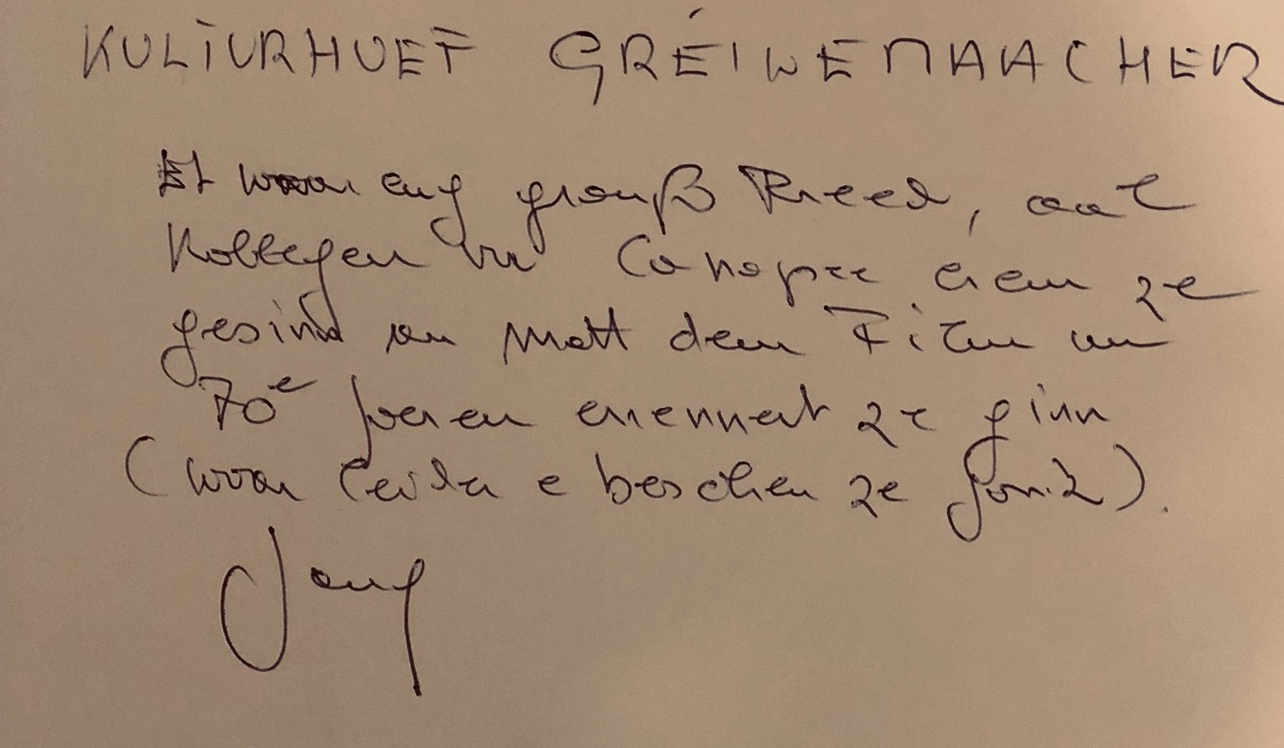 KULTURHUEF GRÉIWEMAACHER
Et woar eng grouß Freed, aal
Kollegen vu Canopée erem ze
gesinn an matt dem Film un
70e Joeren erennert ze ginn
(woar leider e besschen ze)
Jang